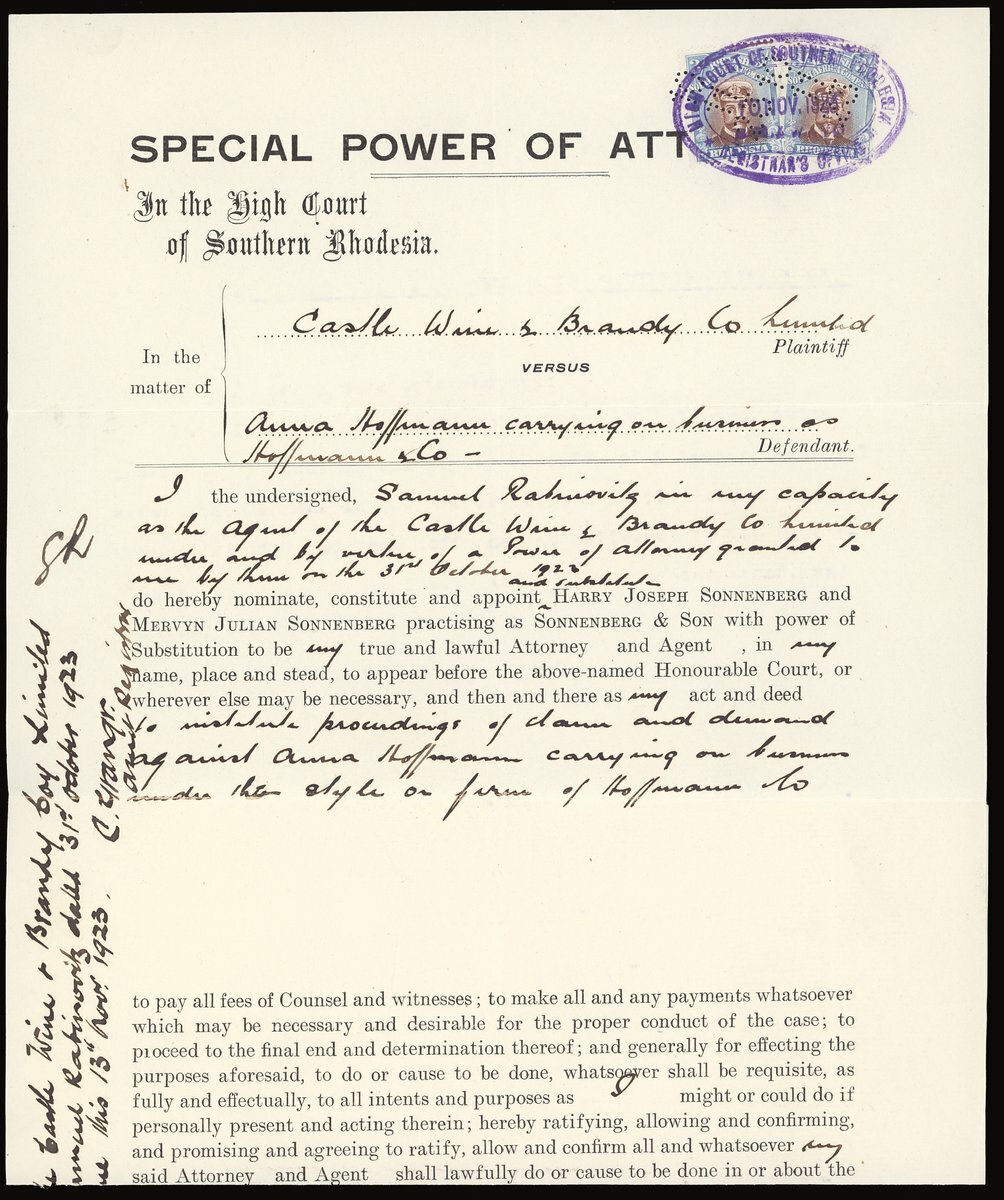 SPECIAL POWER OF ATT
HIGH COURT OF SOUTHERN RHODESIA
10. NOV. 1923
REGISTRAR'S OFFICE
RHODESIA RHODESIA
In the High Court
of Southern Rhodesia.
Castle Wine & Brandy Co Limited
Plaintiff
In the
matter of
VERSUS
Anna Hoffmann carrying on business as
Hoffmann & Co –
Defendant.
I the undersigned, Samuel Rabinovitz in my capacity
as the Agent of the Castle Wine & Brandy Co Limited
under and by virtue of a Power of attorney granted to
me by them on the 31st October 1923
and substitute
do hereby nominate, constitute and appoint HARRY JOSEPH SONNENBERG and
MERVYN JULIAN SONNENBERG practising as SONNENBERG & SON with power of
Substitution to be my true and lawful Attorney and Agent , in my
name, place and stead, to appear before the above-named Honourable Court, or
wherever else may be necessary, and then and there as my act and deed
to institute proceedings of claim and demand
against Anna Hoffmann carrying on business
under the style or firm of Hoffmann Co
to pay all fees of Counsel and witnesses; to make all and any payments whatsoever
which may be necessary and desirable for the proper conduct of the case; to
proceed to the final end and determination thereof; and generally for effecting the
purposes aforesaid, to do or cause to be done, whatsoever shall be requisite, as
fully and effectually, to all intents and purposes as I might or could do if
personally present and acting therein; hereby ratifying, allowing and confirming,
and promising and agreeing to ratify, allow and confirm all and whatsoever my
said Attorney and Agent shall lawfully do or cause to be done in or about the
SR
Castle Wine & Brandy Coy Limited
Rabinovitz dated 31st October 1923
this 13th Novr. 1923.
Registrar